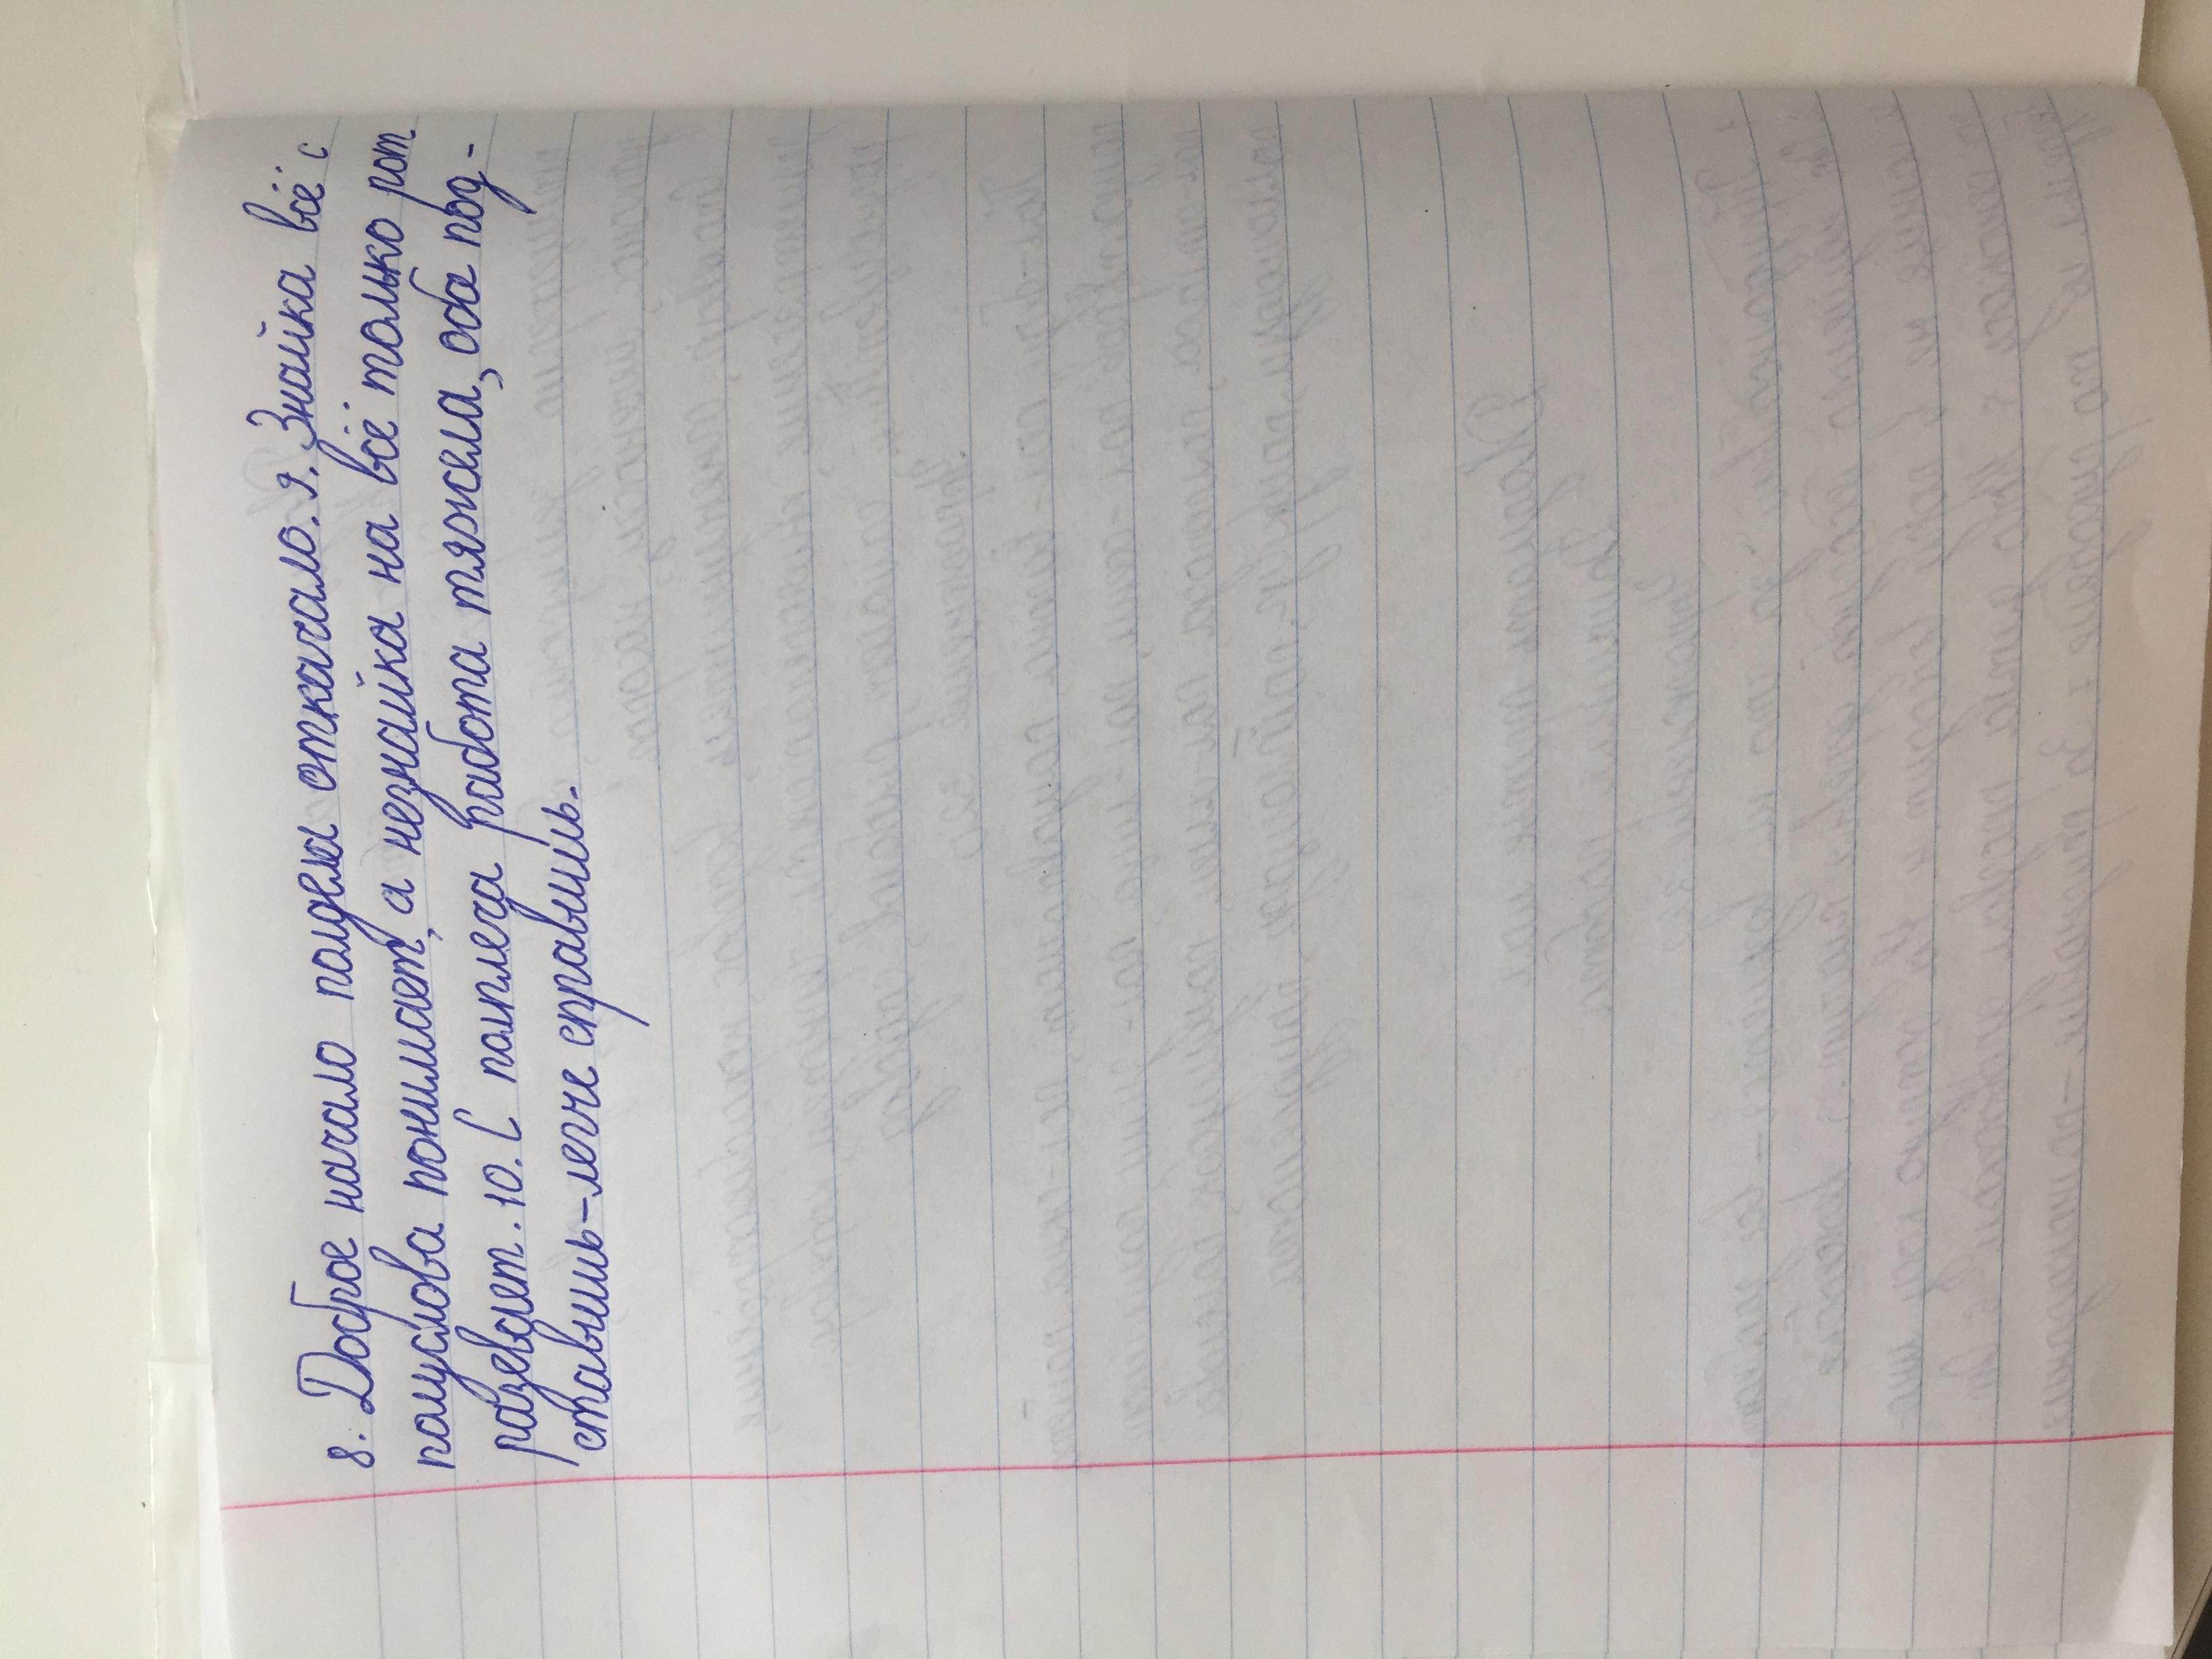 8. Доброе начало полдела откачало. 9. Знайка всё с
полуслова понимает, а незнайка на всё только рот
разевает. 10. С полплеча работа тяжела, оба под-
ставишь-легче справишь.